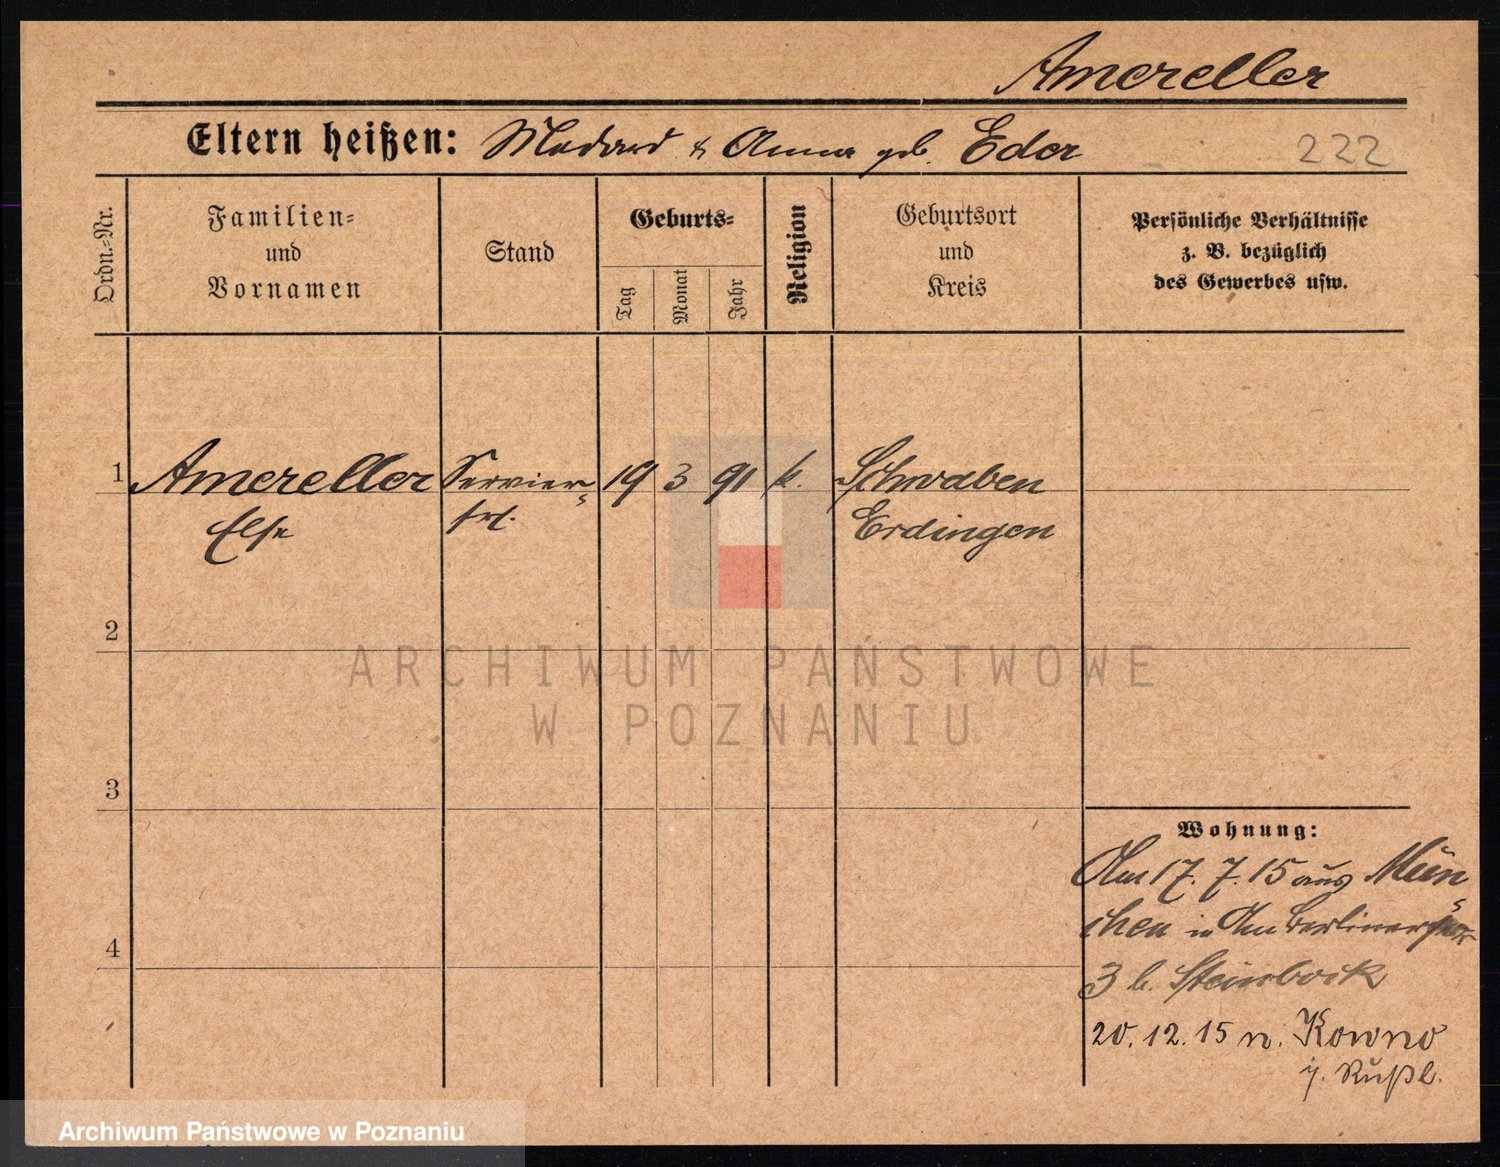 Amereller
Eltern heißen: Medard & Anna geb. Eder
222
Ordn.-Nr.
Familien-
und
Vornamen
Stand
Geburts-
Tag
Monat
Jahr
Religion
Geburtsort
und
Kreis
Persönliche Verhältnisse
z. B. bezüglich
des Gewerbes usw.
1 Amereller Servier- 19 3 91 k. Schwaben
Else frl. Erdingen
2
3
Wohnung:
Am 17. 7. 15 aus Mün-
chen in Am Berliner Tor
4
3 b. Steinbock
20. 12. 15 n. Kowno
i. Rußl.
ARCHIWUM PAŃSTWOWE
W POZNANIU
Archiwum Państwowe w Poznaniu